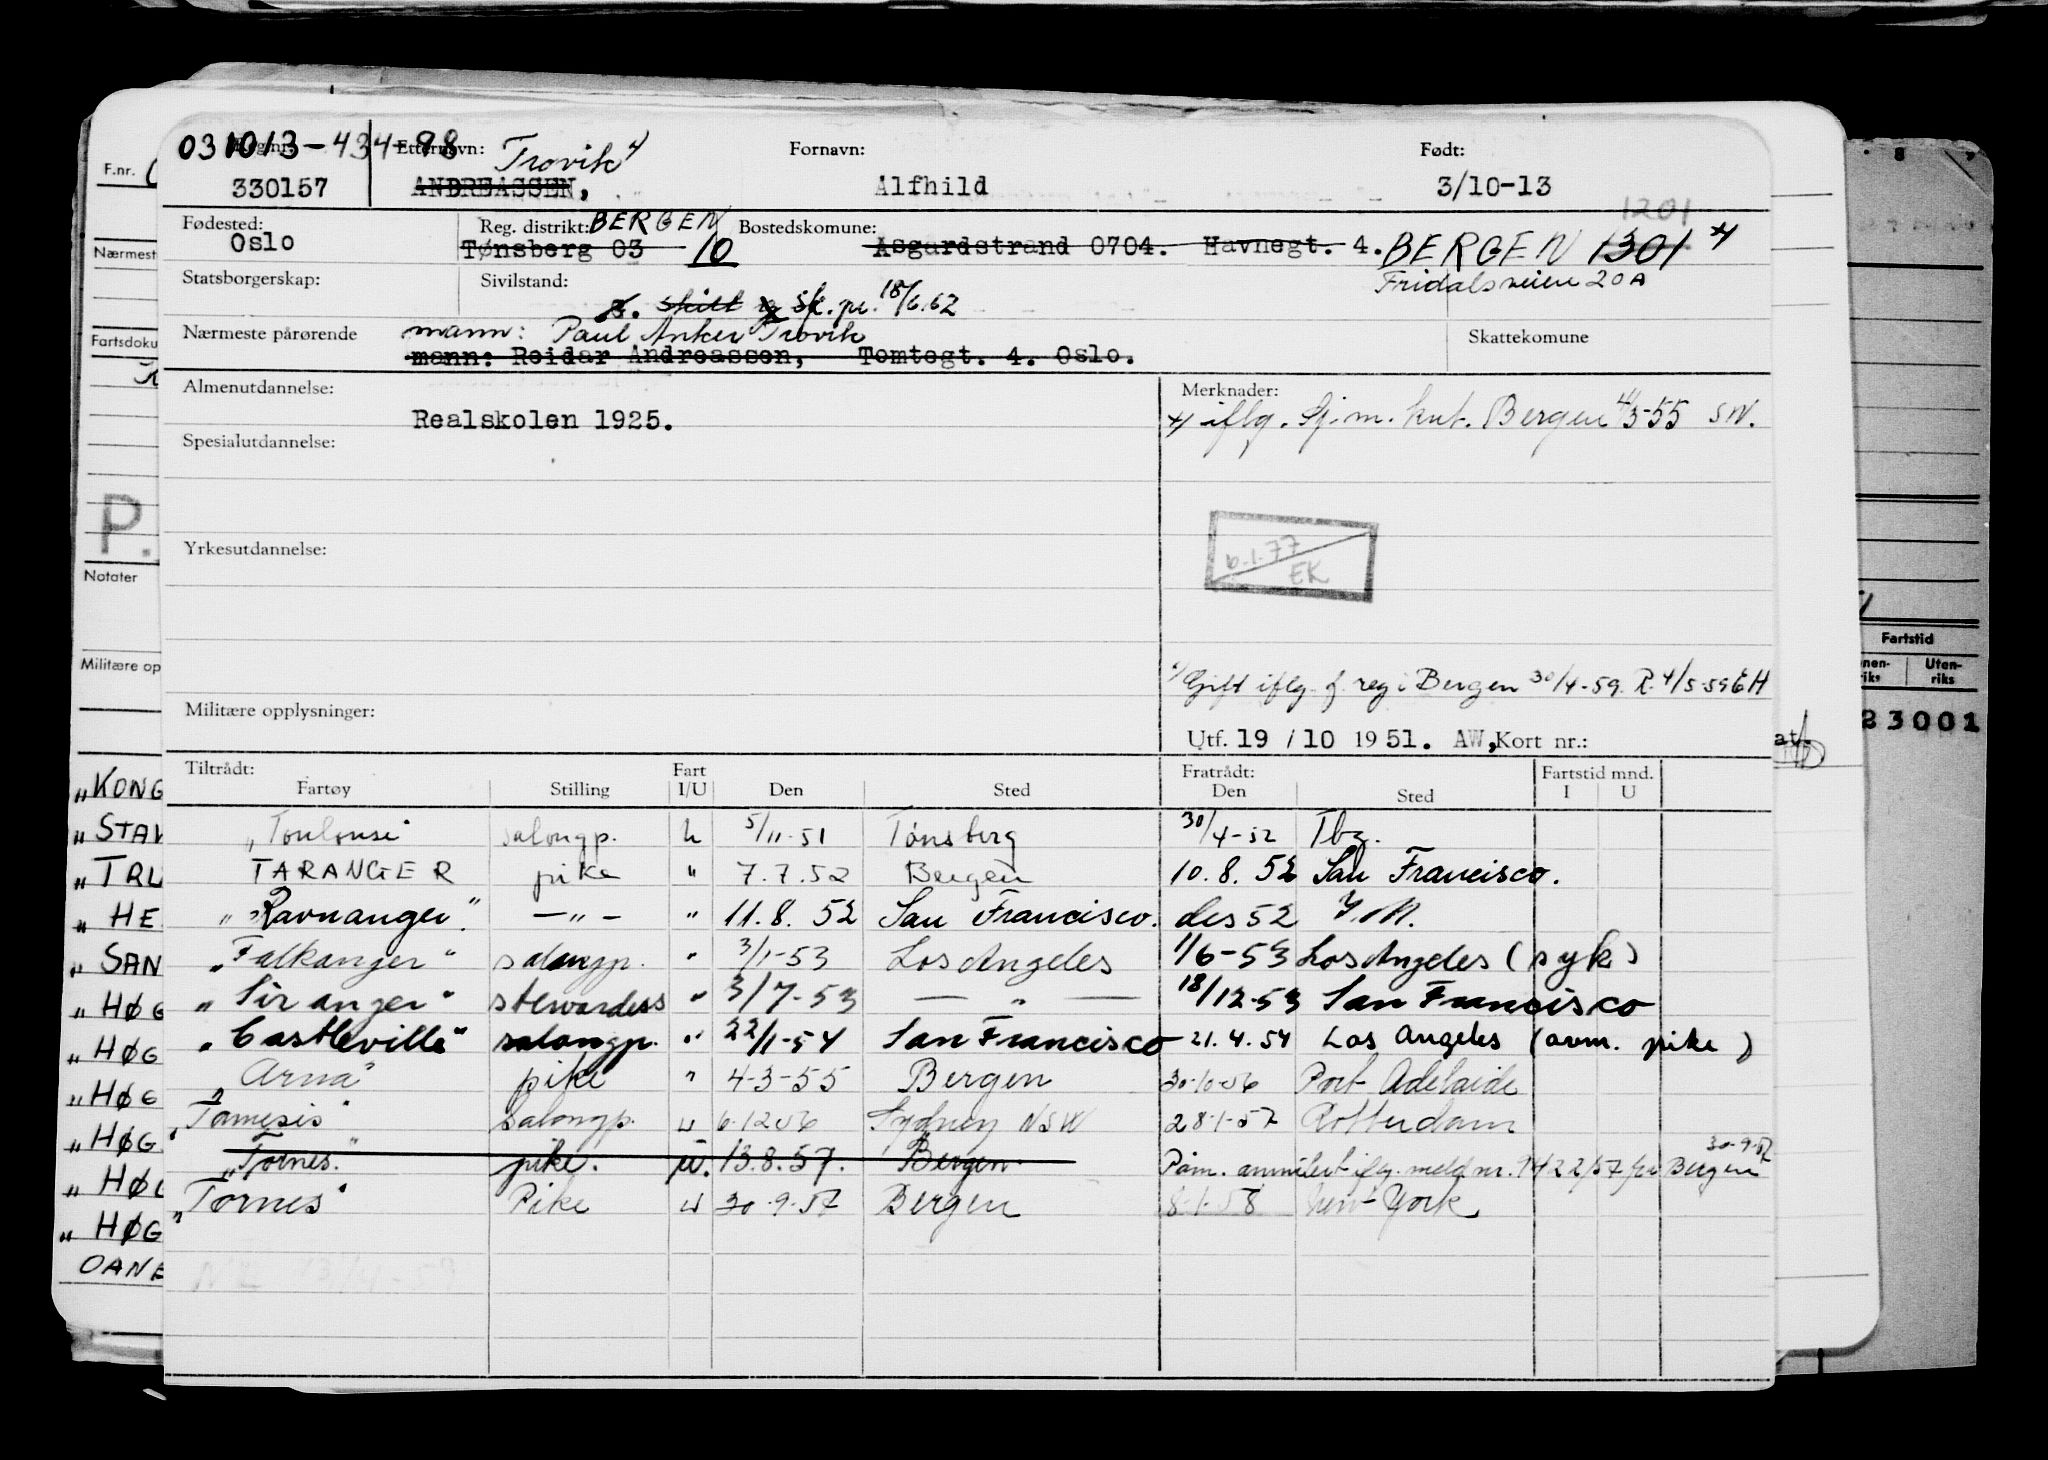 031013-434-98 Etternavn: Trovik x) Fornavn: Født:
330157 ANDREASSEN, Alfhild 3/10-13
Fødested: Oslo Reg. distrikt: BERGEN Bostedskomune: 1201
Tønsberg 03 10 Åsgardstrand 0704. Havnegt. 4. BERGEN 1301 x)
Statsborgerskap: Sivilstand: Fridalsveien 20A
skilt sk. pr. 18/6.62
Nærmeste pårørende mann: Paul Anker Trovik Skattekomune
mann: Reidar Andreassen, Tomtegt. 4. Oslo.
Almenutdannelse: Merknader:
Realskolen 1925. x) iflg. Sj.m. knt. Bergen 4/3-55 SN.
Spesialutdannelse:
Yrkesutdannelse:
6.1.77
EK
Gift iflg. f. reg i Bergen 30/4-59. R. 4/5-59 EH
Militære opplysninger:
Utf. 19 / 10 19 51. AW, Kort nr.:
Tiltrådt: Fart Fratrådt: Fartstid mnd.
Fartøy Stilling I/U Den Sted Den Sted I U
"Toulouse" salongp. u 5/11-51 Tønsberg 30/4-52 Tbg.
TARANGER pike " 7.7.52 Bergen 10.8.52 San Francisco.
"Ravnanger" -"- " 11.8.52 San Francisco. des 52
"Falkanger" salongp. " 3/1-53 Los Angeles 1/6-53 Los Angeles (syk)
"Siranger" stewardess " 3/7-53 — " — 18/12-53 San Francisco
"Castleville" salongp. " 22/1-54 San Francisco 21.4.54 Los Angeles (avm. pike)
"Arna" pike " 4-3-55 Bergen 30-10-56 Port Adelaide
"Tamesis" Salongp. u 6-12-56 Sydney NSW 28-1-57 Rotterdam
"Tornes." pike. u. 13.8.57. Bergen Påm. annulert iflg. meld nr. 9422/57 fra Bergen 30-9-57
"Tornes" Pike u 30-9-57 Bergen 8-1-58 New-York
F.nr.
Nærmest
Fartsdoku
P.
Notater
Militære op
"KONG
"STAV
"TRU
"HE
"SAN
"HØG
"HØG
"HØG
"HØG
"HØG
"HØG
OANE
Fartstid
nen-
riks
Uten-
riks
23001